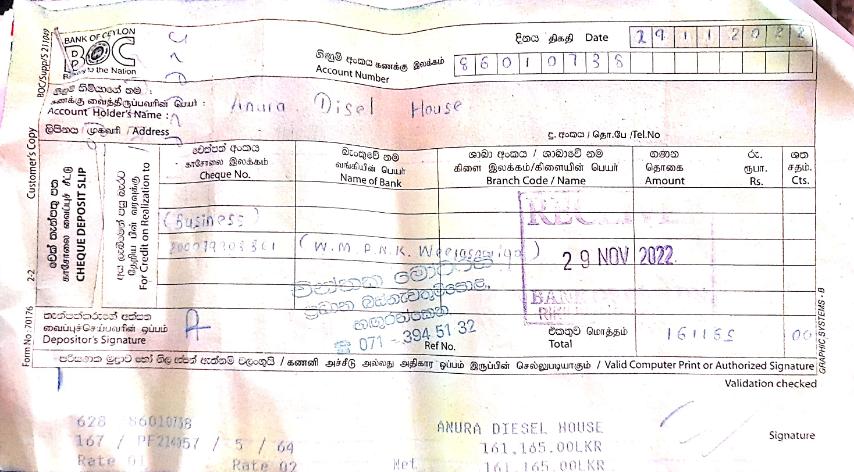 BOC/Supp/S 211/049
BANK OF CEYLON
BOC
to the Nation
දිනය திகதி Date 29112022
ගිණුම් අංකය கணக்கு இலக்கம்
Account Number
86010738
ගිණුම් හිමියාගේ නම :
கணக்கு வைத்திருப்பவரின் பெயர் :
Account Holder's Name :
Anura Disel House
ලිපිනය / முகவரி / Address
දු. අංකය / தொ.பே /Tel.No
Customer's Copy
2-2
Form No : 70176
චෙක් තැන්පතු පත
காசோலை வைப்புச் சீட்டு
CHEQUE DEPOSIT SLIP
For Credit on Realization to
චෙක්පත් අංකය
காசோலை இலக்கம்
Cheque No.
බැංකුවේ නම
வங்கியின் பெயர்
Name of Bank
ශාඛා අංකය / ශාඛාවේ නම
கிளை இலக்கம்/கிளையின் பெயர்
Branch Code / Name
ගණන
தொகை
Amount
රු.
ரூபா.
Rs.
ශත
சதம்.
Cts.
(Business)
(W.M.P.N.K.
29 NOV 2022
BANK
071 - 394 51 32
තැන්පත්කරුගේ අත්සන
வைப்புச்செய்பவரின் ஒப்பம்
Depositor's Signature
Ref No.
එකතුව மொத்தம்
Total
161165 00
GRAPHIC SYSTEMS - B
பரිගණක මුද්‍රාව හෝ නිල අත්සන් ඇත්නම් වලංගුයි / கணனி அச்சீடு அல்லது அதிகார ஒப்பம் இருப்பின் செல்லுபடியாகும் / Valid Computer Print or Authorized Signature
Validation checked
628 86010738
ANURA DIESEL HOUSE
167 / PF214057 / 5 / 64
161,165.00LKR
Signature
Rate 01 Rate 02 Net 161,165.00LKR